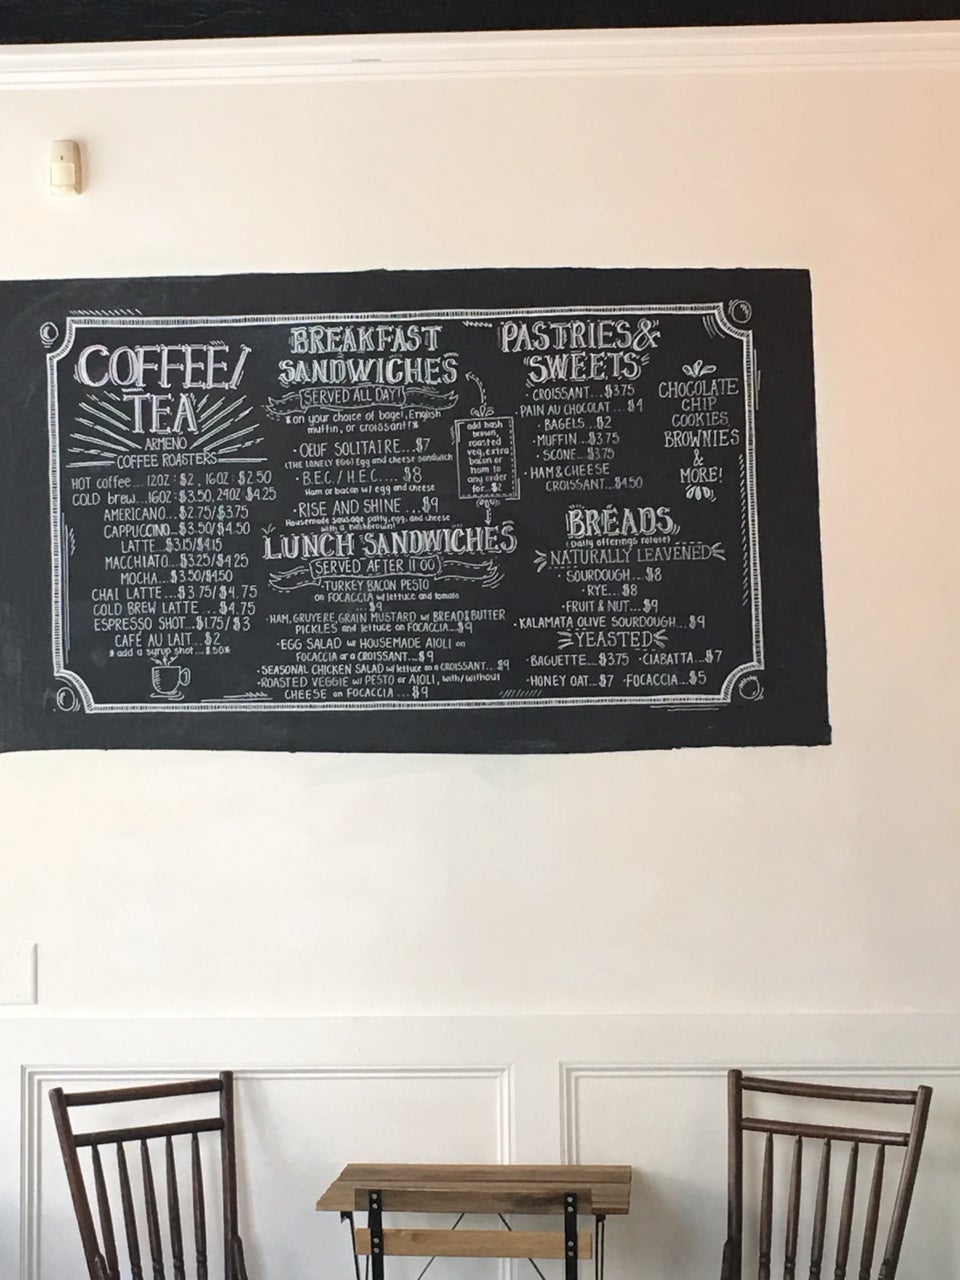 COFFEE/
TEA
ARMENO
COFFEE ROASTERS
HOT coffee...12OZ: $2, 16OZ: $2.50
COLD brew...16OZ: $3.50, 24OZ $4.25
AMERICANO...$2.75/$3.75
CAPPUCCINO...$3.50/$4.50
LATTE...$3.15/$4.15
MACCHIATO...$3.25/$4.25
MOCHA...$3.50/$4.50
CHAI LATTE...$3.75/$4.75
COLD BREW LATTE...$4.75
ESPRESSO SHOT...$1.75/$3
CAFÉ AU LAIT...$2
*add a syrup shot...$.50*
BREAKFAST
SANDWICHES
SERVED ALL DAY!
*on your choice of bagel, English
muffin, or croissant!*
· OEUF SOLITAIRE...$7
(THE LONELY EGG) Egg and cheese sandwich
· B.E.C. / H.E.C....$8
Ham or bacon w/ egg and cheese
· RISE AND SHINE...$9
Housemade sausage patty, egg, and cheese
with a hashbrown!
add hash
brown,
roasted
veg, extra
bacon or
ham to
any order
for...$2
LUNCH SANDWICHES
SERVED AFTER 11:00
·TURKEY BACON PESTO
on FOCACCIA w/ lettuce and tomato
...$9
·HAM, GRUYERE, GRAIN MUSTARD w/ BREAD&BUTTER
PICKLES and lettuce on FOCACCIA...$9
·EGG SALAD w/ HOUSEMADE AIOLI on
FOCACCIA or a CROISSANT...$9
·SEASONAL CHICKEN SALAD w/ lettuce on a CROISSANT...$9
·ROASTED VEGGIE w/ PESTO or AIOLI, with/without
CHEESE on FOCACCIA...$9
PASTRIES&
SWEETS
· CROISSANT...$3.75
· PAIN AU CHOCOLAT...$4
· BAGELS...$2
· MUFFIN...$3.75
· SCONE...$3.75
· HAM & CHEESE
CROISSANT...$4.50
CHOCOLATE
CHIP
COOKIES,
BROWNIES
&
MORE!
BREADS
(Daily offerings rotate)
NATURALLY LEAVENED
· SOURDOUGH...$8
· RYE...$8
· FRUIT & NUT...$9
· KALAMATA OLIVE SOURDOUGH...$9
YEASTED
·BAGUETTE...$3.75 ·CIABATTA...$7
·HONEY OAT...$7 ·FOCACCIA...$5